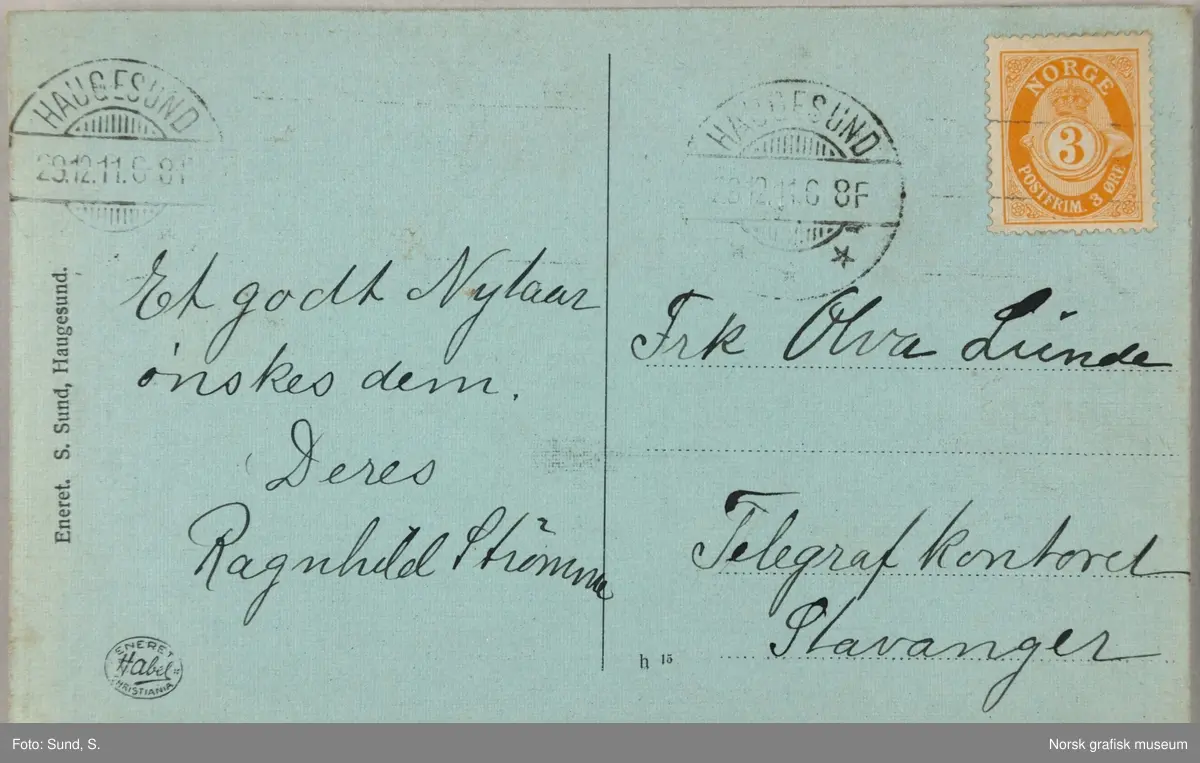 HAUGESUND
29.12.11.6 8F
Et godt Nytaar
ønskes dem.
Deres
Ragnhild Strömme
Eneret. S. Sund, Haugesund.
ENERET
Habel
CHRISTIANIA
HAUGESUND
29.12.11.6 8F
NORGE
3
POSTFRIM. 3 ØRE
Frk Olva Lunde
Telegraf kontoret
Stavanger
h 15
Foto: Sund, S.
Norsk grafisk museum